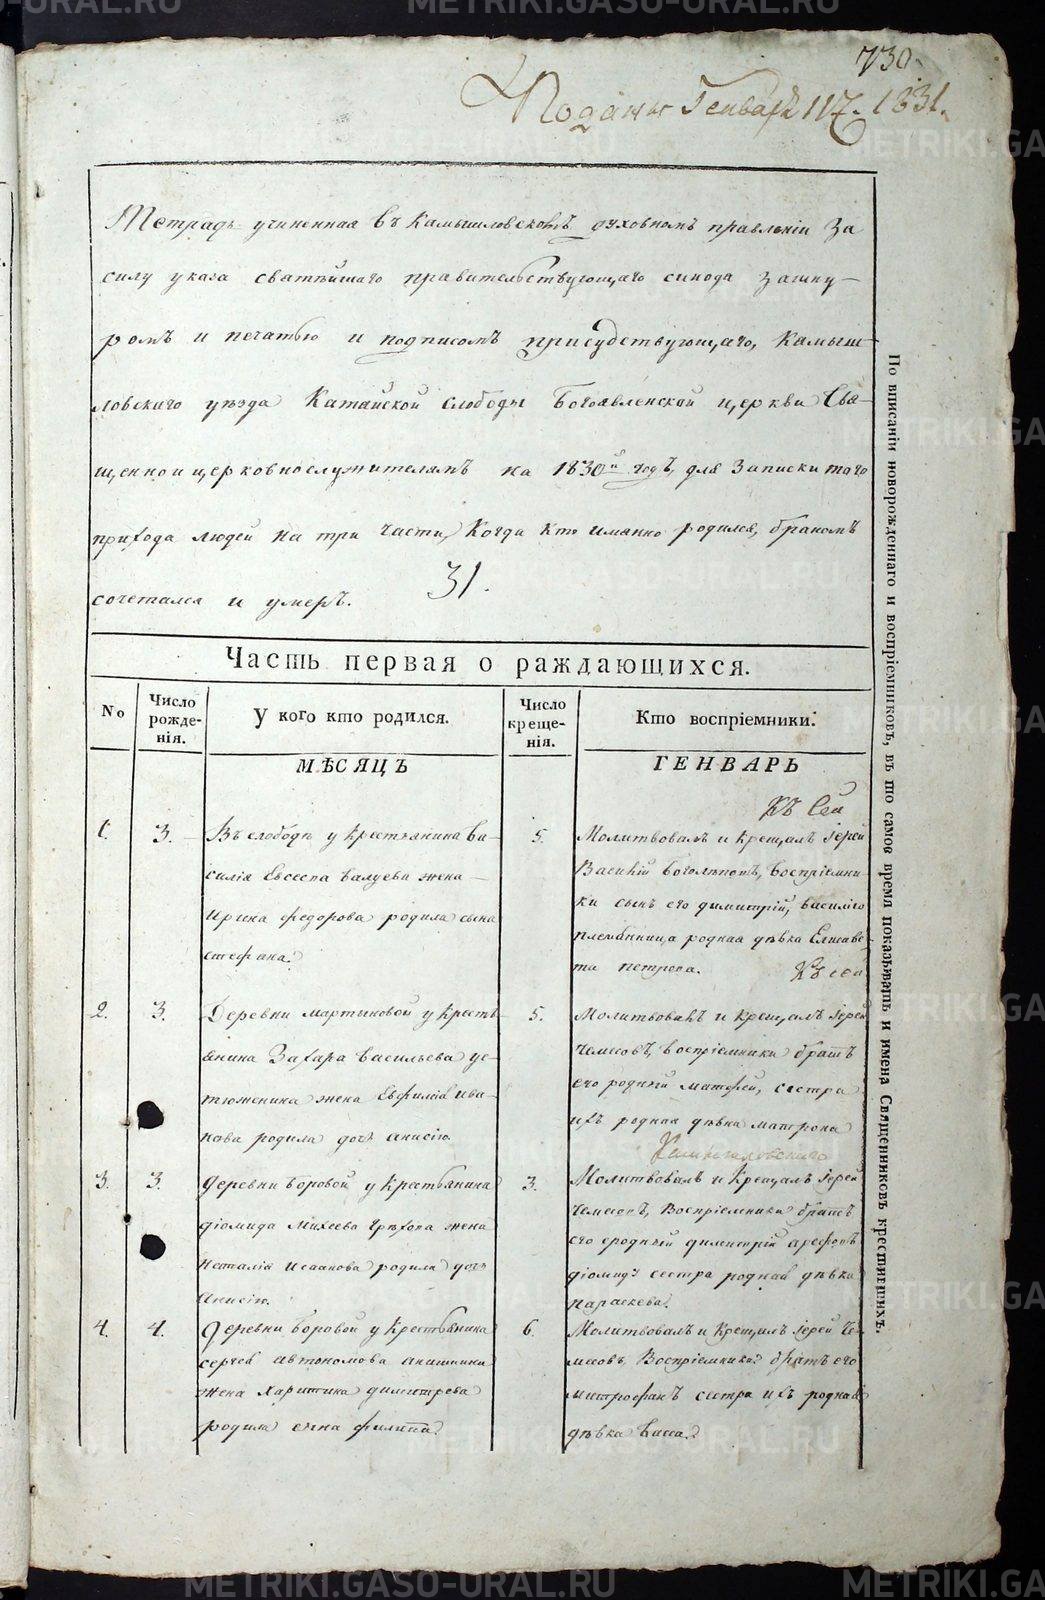 730.
Поданы Генваря 117. 1831.
Тетрадь учиненная въ Камышловскомъ духовномъ правленіи За
силу указа святѣйшаго правительствующаго синода за шну-
ромъ и печатью и подписомъ присудствующаго, Камыш-
ловскаго уѣзда Катайской Слободы Богоявленской церкви Свя-
щенно и церковнослужителямъ на 1830й годъ, для Записки того
прихода людей на три части, Когда Кто имянно родился, бракомъ
сочетался и умеръ. 31.
Часть первая о раждающихся.
No Число рожде-нія. У кого кто родился. Число креще-нія. Кто воспріемники.
МѢСЯЦЪ ГЕНВАРЬ
Къ Сей
1. 3. Въ слободѣ у крестьянина Ва-
силія Евсеева Балуева жена
Ирина федорова родила сына
стефана.
5. Молитвовалъ и Крещалъ Іерей
Василій Боголѣповъ, Воспріемни-
ки сынъ его димитрій, василія
племянница родная дѣвка Елисаве-
та петрова. Къ сей
2. 3. Деревни мартиновой у кресть
янина Захара васильева ус-
тюженина жена Евфимія ива-
нова родила дочь анисію.
5. Молитвовалъ и крещалъ Іерей
Чемесовъ, воспріемники братъ
его родный матфей, сестра
ихъ родная дѣвка матрона
Камышловскаго
3. 3. деревни Боровой у Крестьянина
діомида Михеева Грѣхова жена
наталія Исаакова родила дочь
анисію.
3. Молитвовалъ и Крещалъ Іерей
Чемесовъ, Воспріемники братъ
его сродный димитрій арефовъ
діомида сестра родная дѣвка
параскева.
4. 4. Деревни Боровой у Крестьянина
сергея автономова
жена Харитина димитрева
родила сына филипа.
6. Молитвовалъ и Крещилъ Іерей Че-
месовъ, Воспріемники братъ его
митрофанъ сестра ихъ родная
дѣвка Васса.
По вписаніи новорожденнаго и воспріемниковъ, въ то самое время показывать и имена Священниковъ крестившихъ.
METRIKI.GASO-URAL.RU